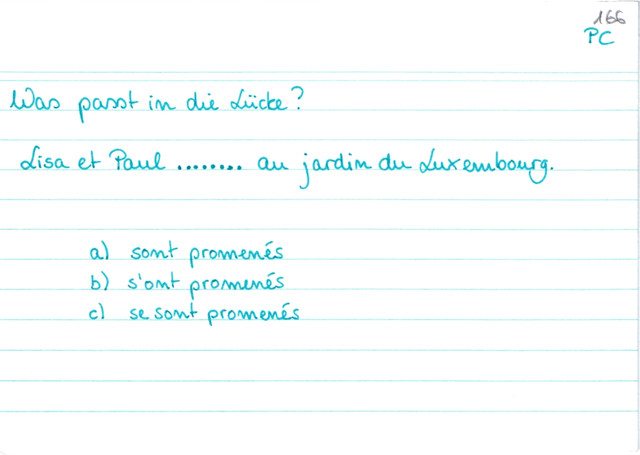 166
PC
Was passt in die Lücke?
Lisa et Paul ........ au jardin du Luxembourg.
a) sont promenés
b) s'ont promenés
c) se sont promenés